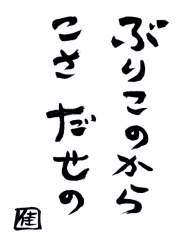 ぶりこのから
こさ だせの
佳